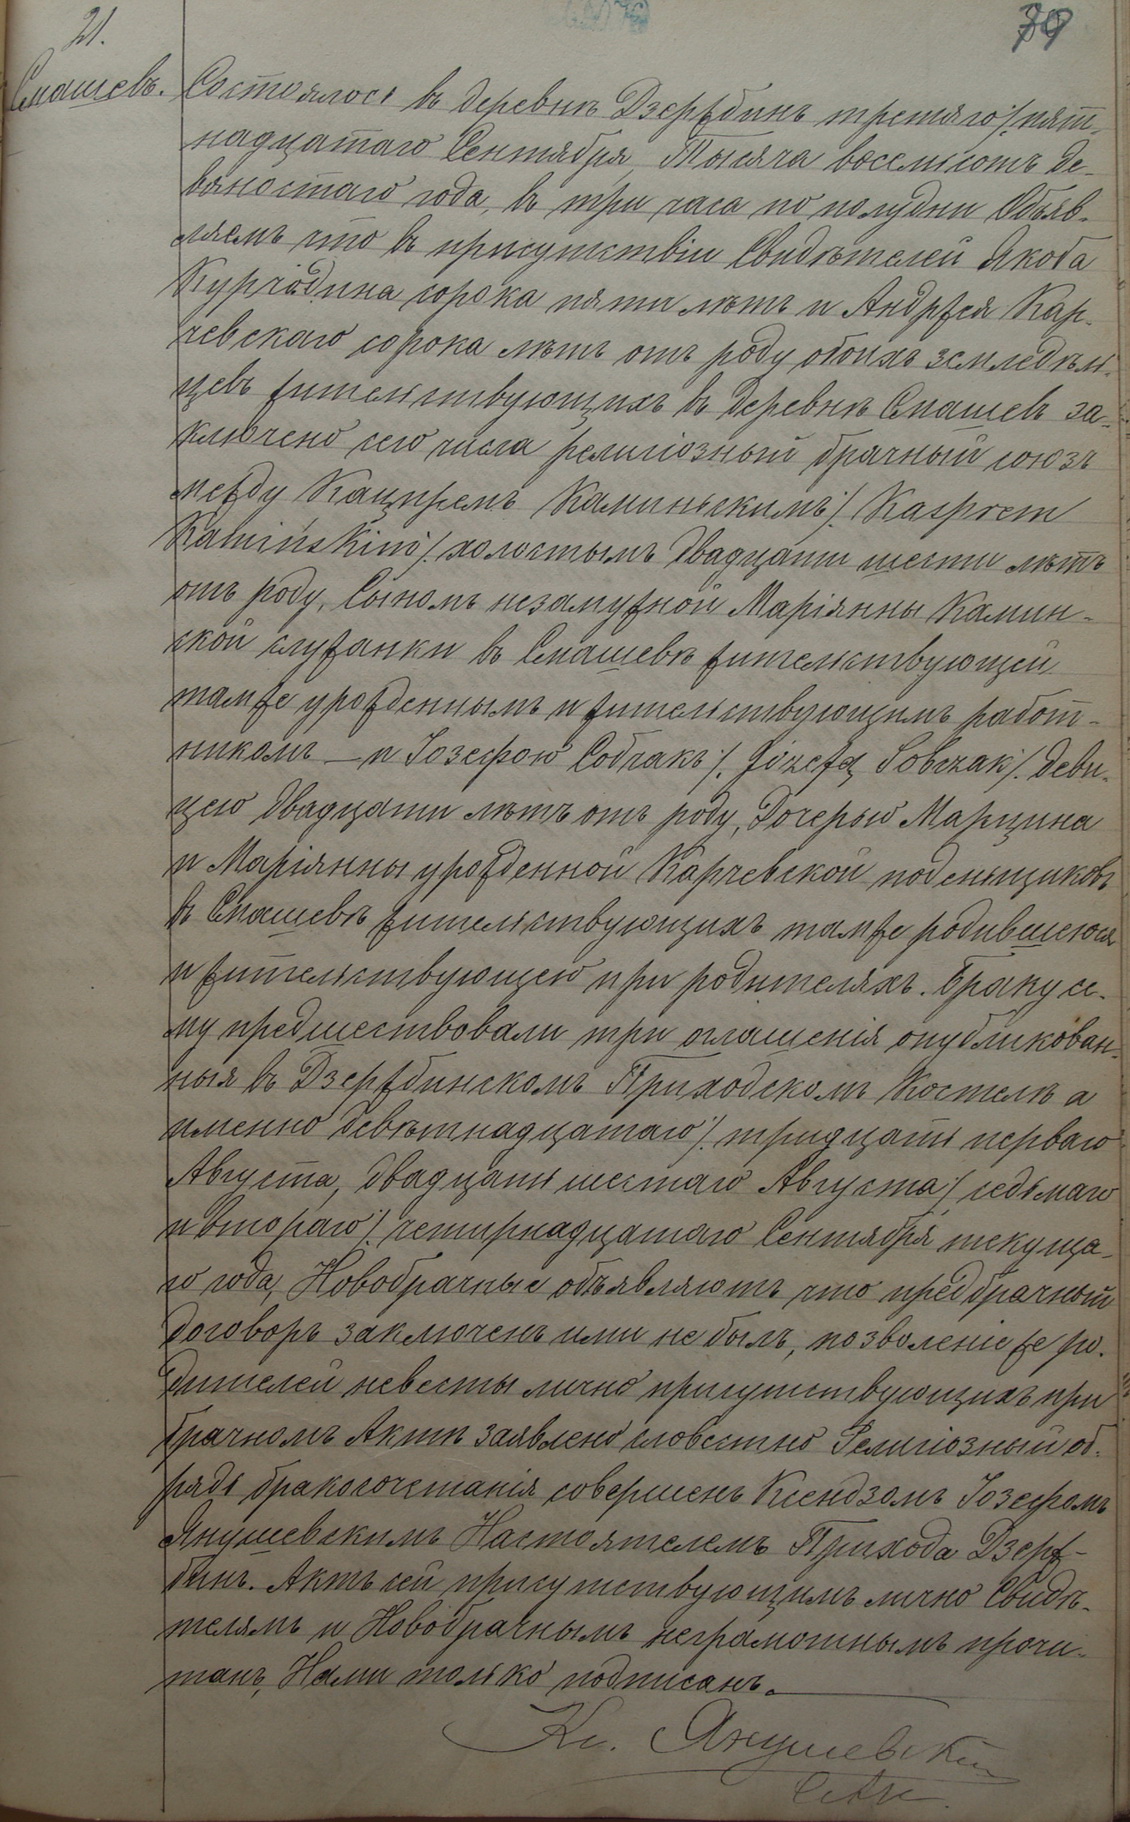 21.
79
Спашевъ. Состоялось въ деревнѣ Дзержбинъ третяго /. пят-
надцатаго Сентября, Тысяча восемьсотъ де-
вяностаго года, въ три часа по полудни Объяв-
ляемъ что въ присутствіи Свидѣтелей Якоба
сорока пяти лѣтъ и Андржея Кар-
чевскаго сорока лѣтъ отъ роду обоихъ земледѣль-
цевъ жительствующихъ въ деревнѣ Спашевъ за-
ключено сего числа религіозный брачный союзъ
между Кацпремъ Каминьскимъ /. Kasprem
Kamińskim /. холостымъ двадцати шести лѣтъ
отъ роду, Сыномъ незамужной Маріянны Камин-
ской служанки въ Спашевѣ жительствующей
тамже урожденнымъ и жительствующимъ работ-
никомъ — и Іозефою Собчакъ /. Józefą Sobczak /. деви-
цею двадцати лѣтъ отъ роду, Дочерью Марцина
и Маріянны урожденной Карчевской поденьщиковъ
въ Спашевѣ жительствующихъ тамже родившеюся
и жительствующею при родителяхъ. Браку се-
му предшествовали три оглашенія опубликован-
ныя въ Дзержбинскомъ Приходскомъ Костелѣ а
именно девѣтнадцатаго /. тридцать перваго
Августа, двадцать шестаго Августа /. седьмаго
и втораго /. четырнадцатаго Сентября текуща-
го года, Новобрачные объявляютъ что предбрачный
договоръ заключенъ ими не былъ, позволеніе же ро-
дителей невесты лично присутствующихъ при
брачномъ Актѣ заявлено словестно Религіозный об-
рядъ бракосочетанія совершенъ Ксендзомъ Іозефомъ
Янушевскимъ Настоятелемъ Прихода Дзерж-
бинъ. Актъ сей присутствующимъ лично Свидѣ-
телямъ и Новобрачнымъ неграмотнымъ прочи-
танъ, Нами только подписанъ.
Кс. Янушевскій